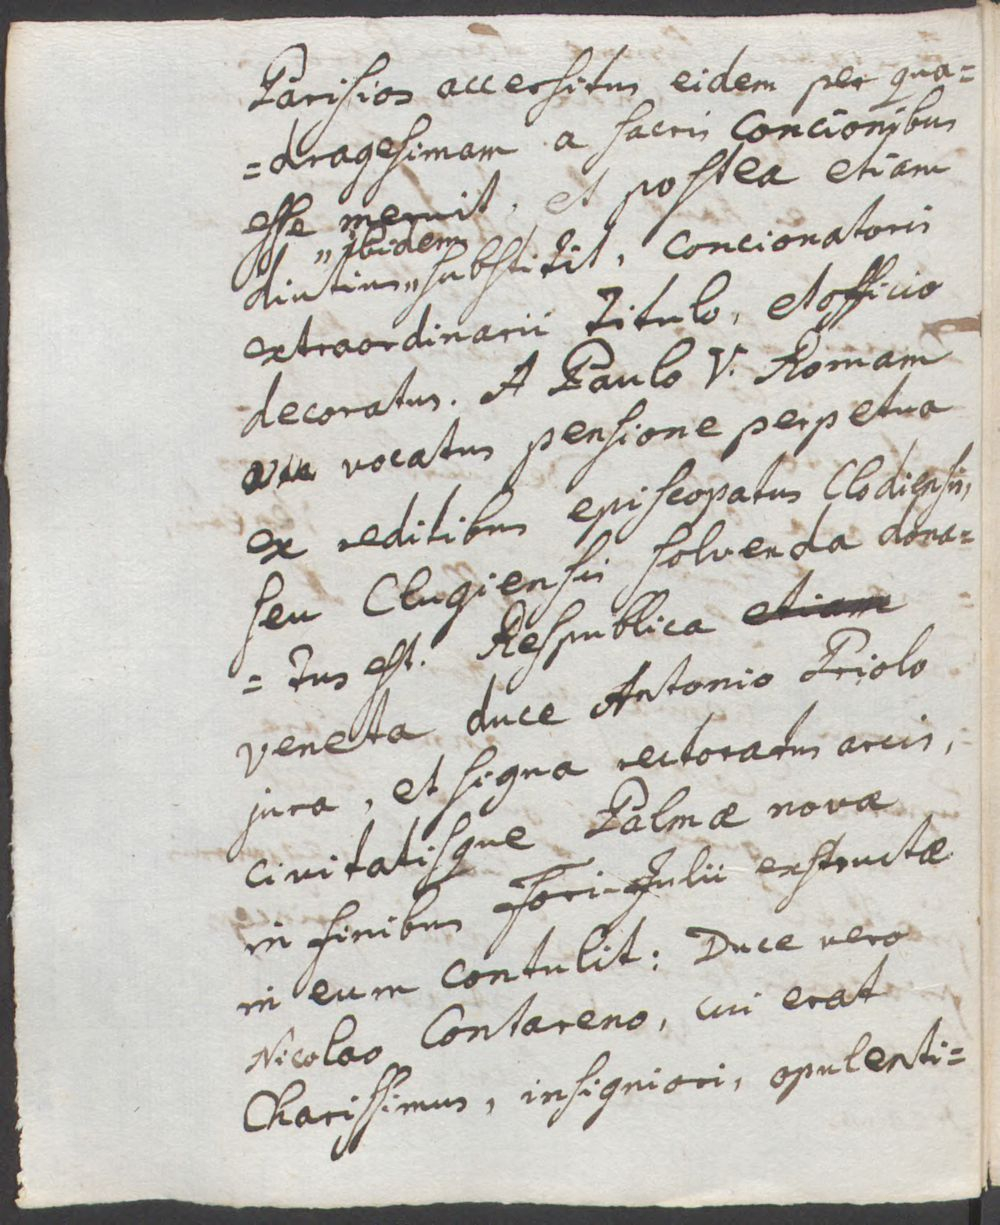 Parisios accersitus eidem per qua=
=dragesimam a sacris Concionibus
esse meruit, et postea etiam
„ibidem
diutius „substitit, concionatoris
extraordinarii titulo, et officio
decoratus. A Paulo V. Romam
vocatus pensione perpetua
ex reditibus episcopatus Clodiensis,
seu Clugiensis solvenda dona=
=tus est. Respublica etiam
veneta duce Antonio Priolo
jura, et signa rectoratus arcis,
civitatisque Palmæ novæ
in finibus Fori-Julii exstructæ
in eum contulit: Duce vero
Nicolao Contareno, cui erat
Charissimus, insigniori, opulenti=